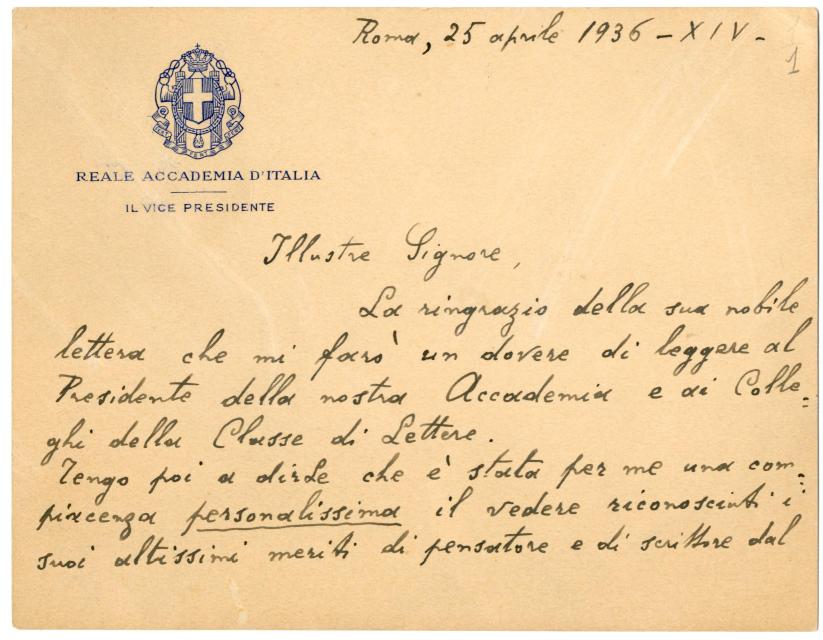 Roma, 25 aprile 1936 - XIV -
1
FERT FERT FERT
REALE ACCADEMIA D'ITALIA
IL VICE PRESIDENTE
Illustre Signore,
La ringrazio della sua nobile
lettera che mi farò un dovere di leggere al
Presidente della nostra Accademia e ai Colle=
ghi della Classe di Lettere.
Tengo poi a dirLe che è stata per me una com=
piacenza personalissima il vedere riconosciuti i
suoi altissimi meriti di pensatore e di scrittore dal